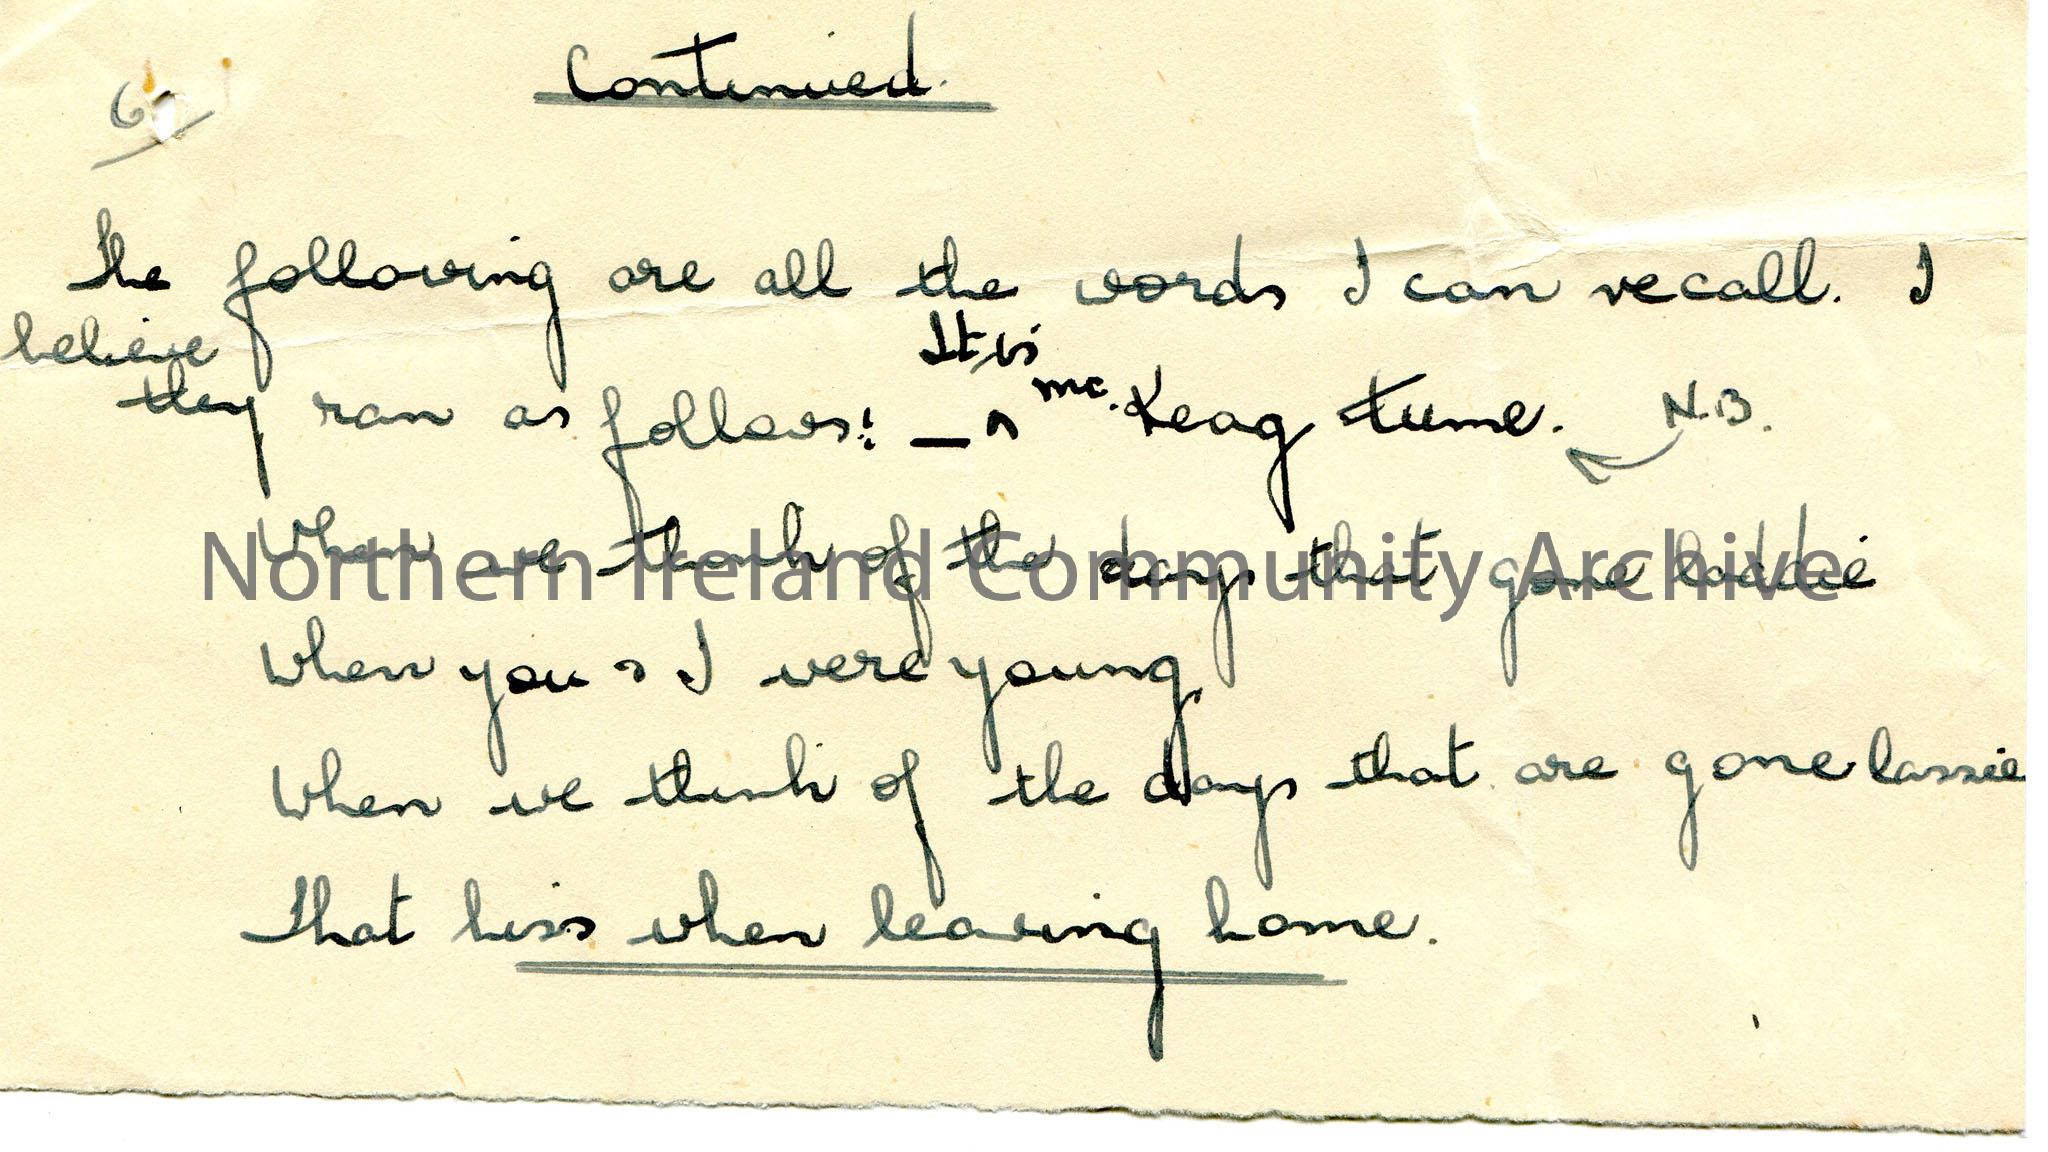 Continued.
6
The following are all the words I can recall. I
believe
they ran as follows: — ^ It is Mc. Keag tune. N.B.
When we think of the days that gone laddie
When you & I were young,
When we think of the days that are gone lassie
That kiss when leaving home.
Northern Ireland Community Archive